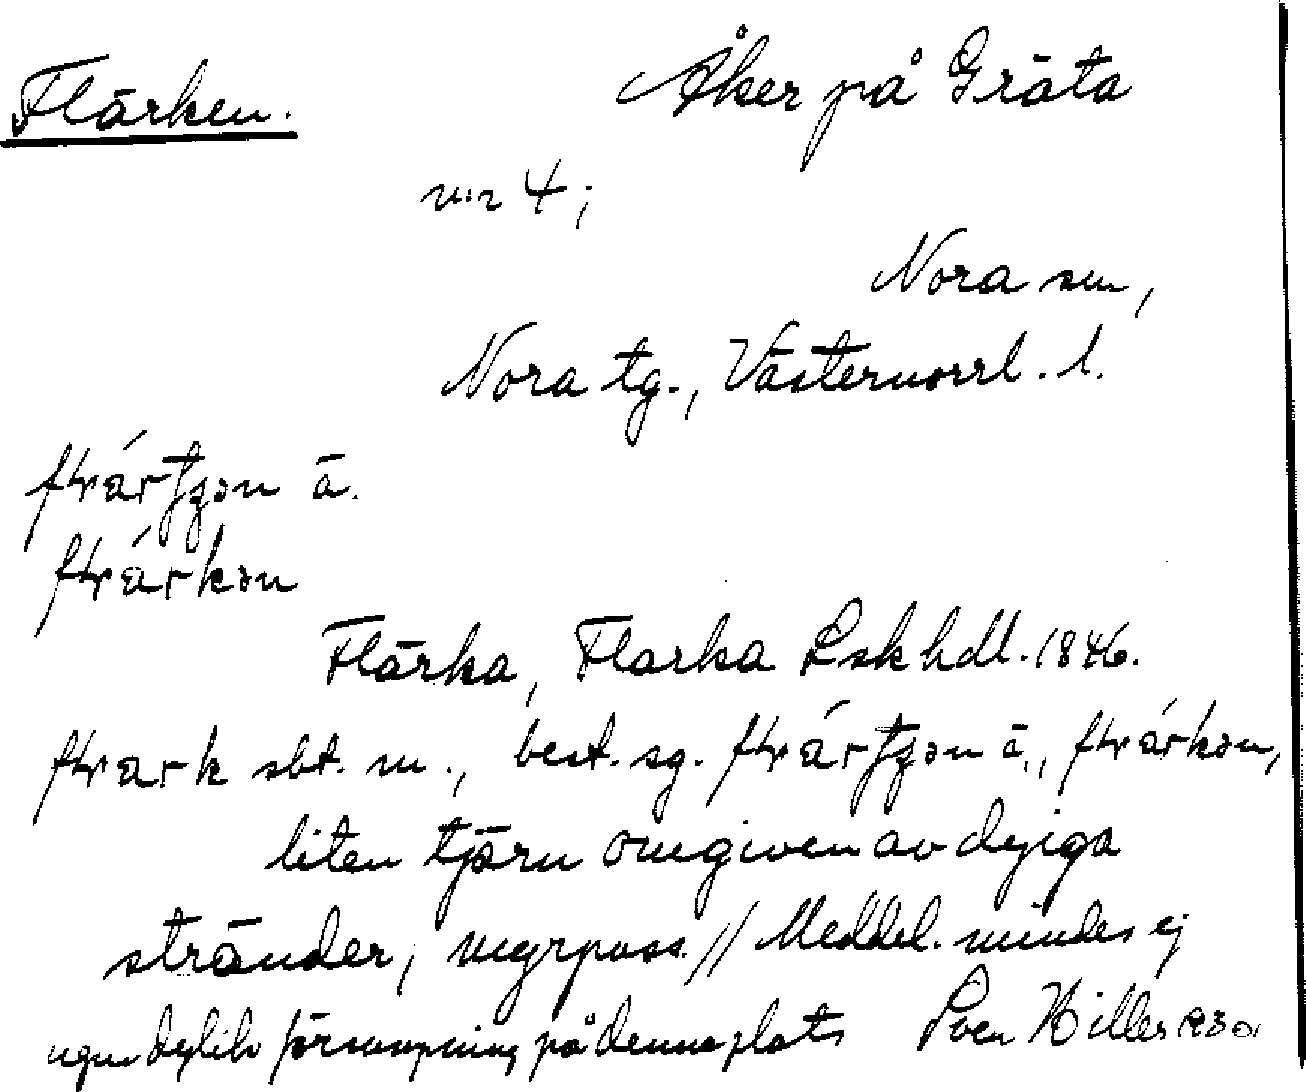 Flärken. Åker på Gräta
n:r 4;
Nora sn,
Nora tg., Västernorrl. l.
ä.
Flärka, Flarka Lskhdl. 1846.
sbt. m., best. sg. ä.,
liten tjärn omgiven av dyiga
stränder, myrpuss. // Meddel. mindes ej
ngn dylik försumpning på denna plats Sven Hiller 1930